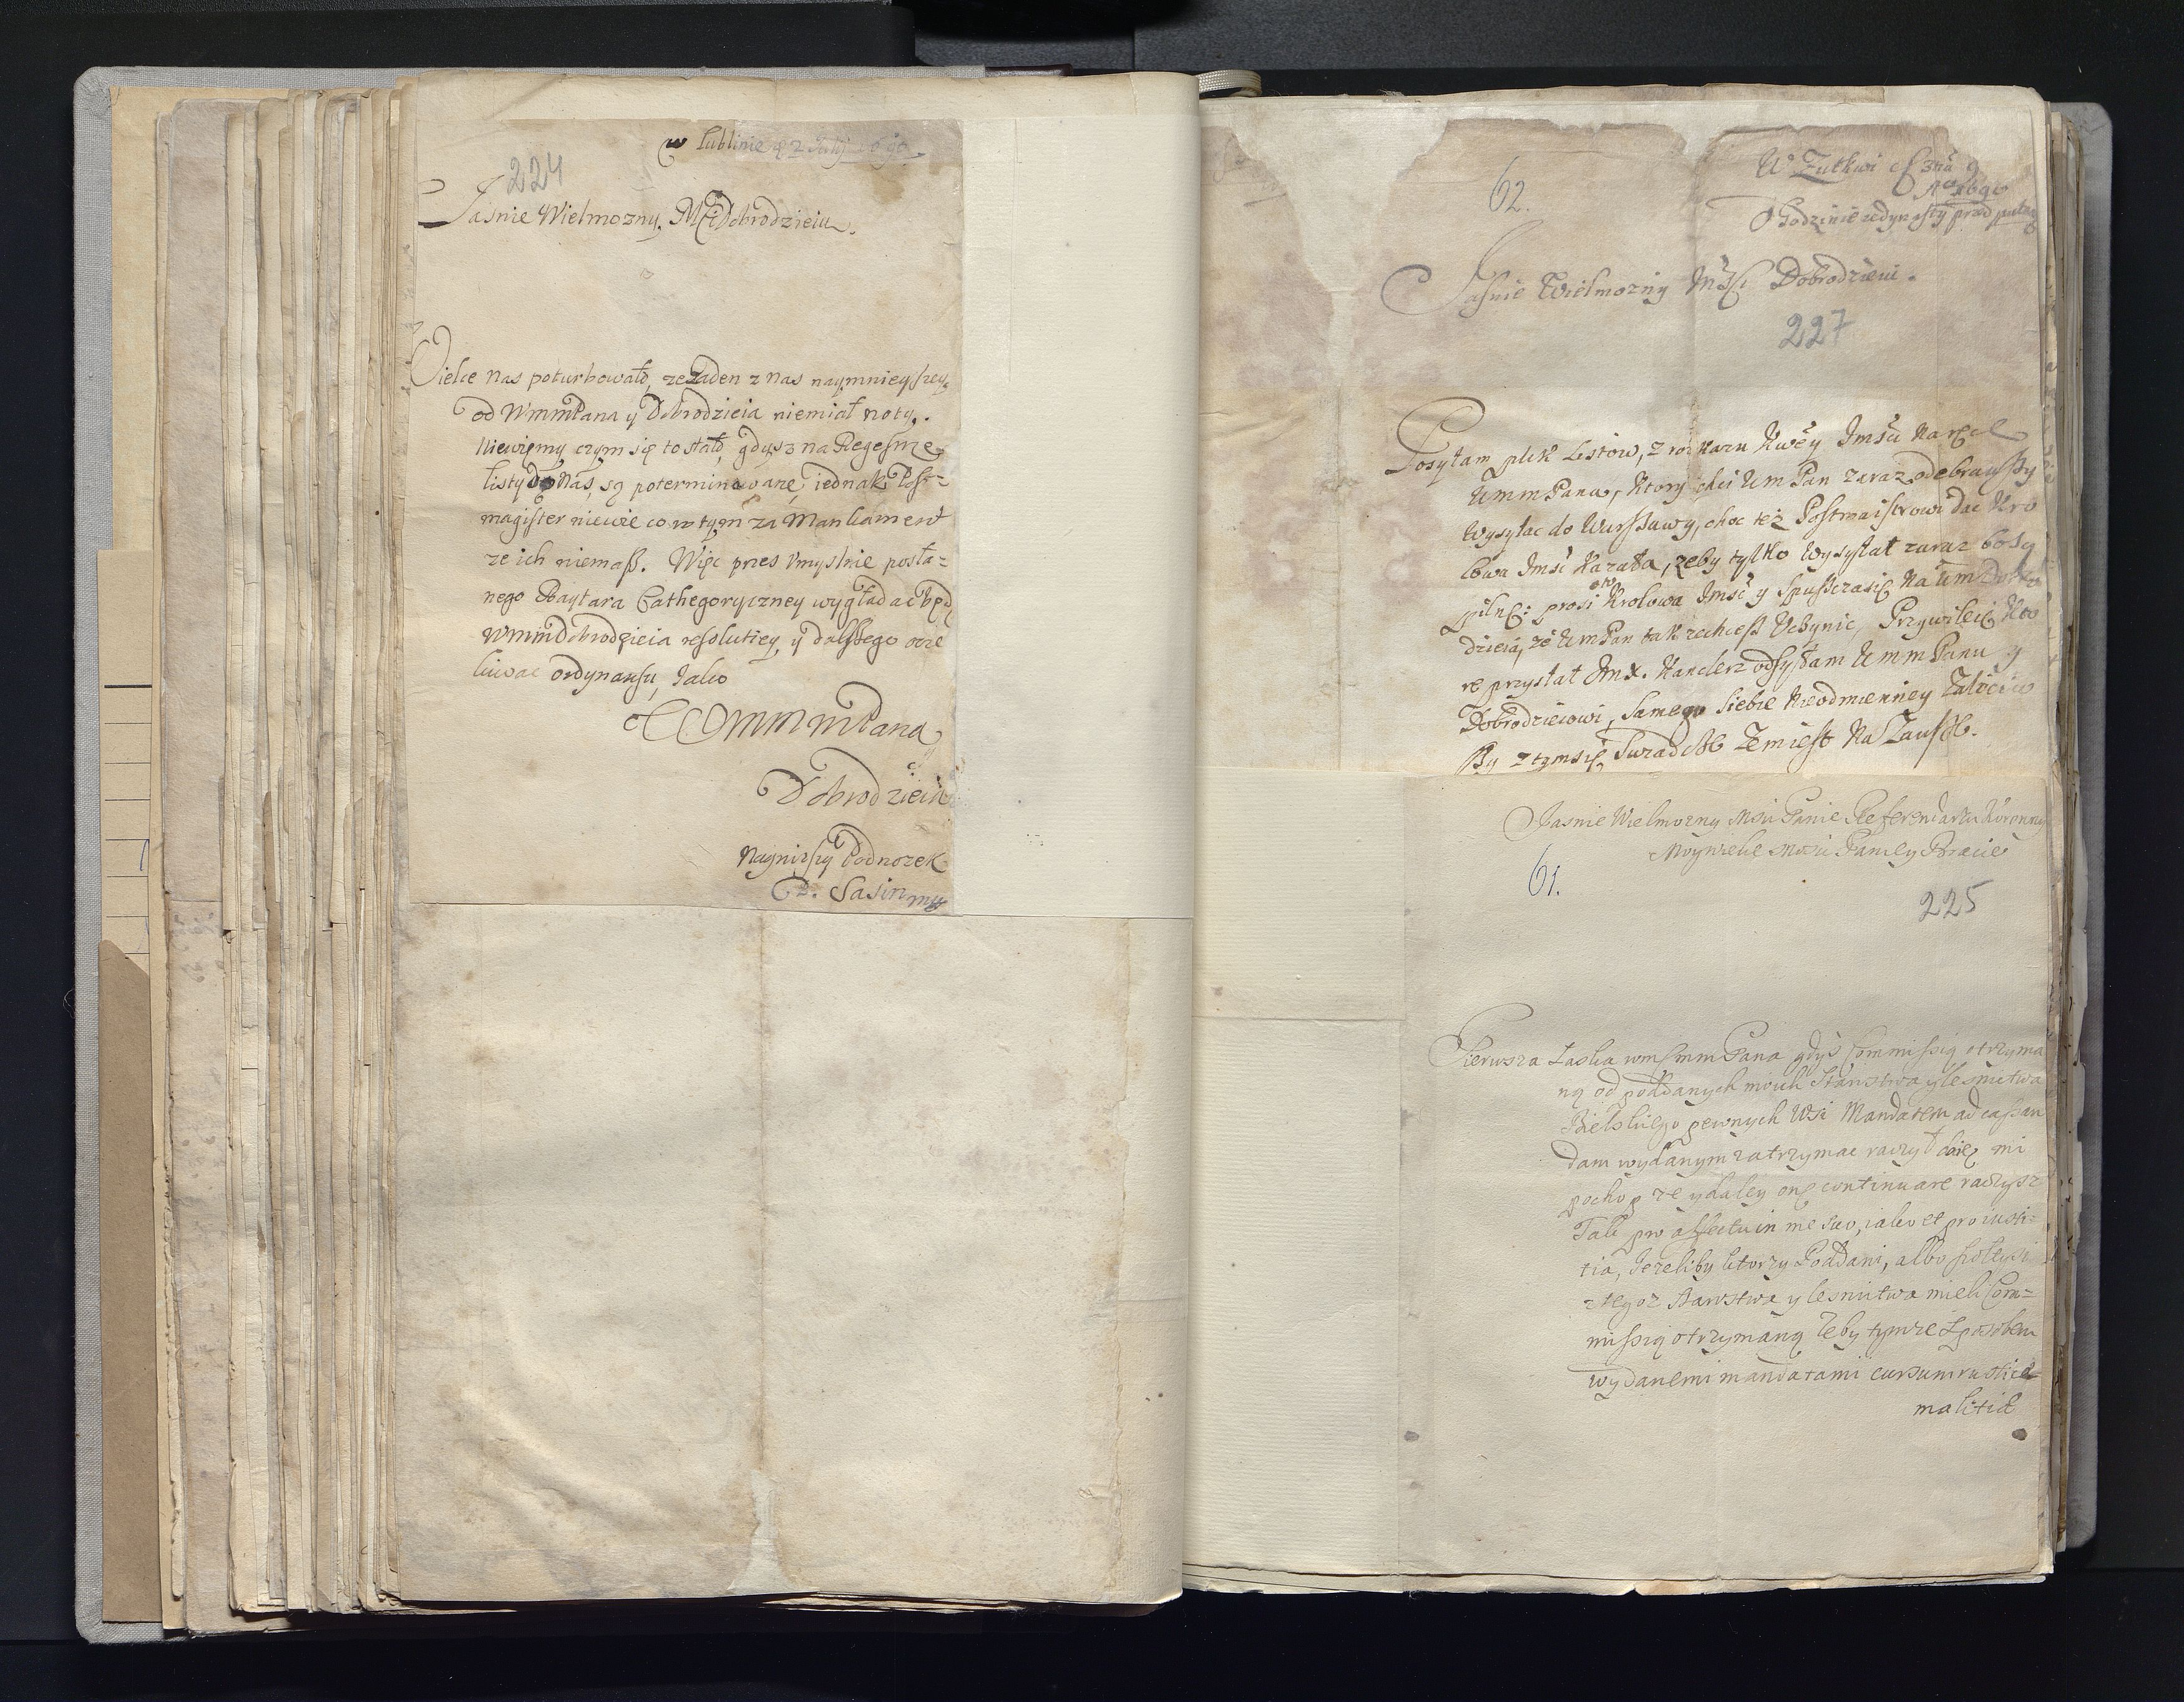 w Lublinie 2 July 1690
224
Jasnie Wielmozny Mci Dobrodzieiu.
Wielce nas poturbowało, ze zaden z nas naymnieyszey
od WmmPana y Dobrodzieia niemiał noty.
Niewiemy czym się to stało, gdysz na Regestrze
listy do nas, są poterminowane, iednak Post=
magister niewie co w tym za Mankament
ze ich niemasz. Więc przes Vmyslnie posła=
nego Baytara Cathegoryczney wyglądac będę
Wmm Dobrodzieia resolutiey, y dalszego ocze
kiwac ordynansu, Jako
WmmmPana
Dobrodzieia
Naynizszy Podnozek
Sasin
62.
W Zułkwi
O Godzinie iedynasty przed
Jasnie Wielmozny Mści Dobrodzieiu.
227
Posyłam plik Listow, z roskazu Krwey Jmści na ręce
Umm Pana, ktory chciey Um Pan zaraz odebrawszy
Wysyłac do Warszawy, choc też Postmaistrowi dac Kro
lowa Jmśc Kazała, zeby tylko wysyłał zaraz
pilnę; prosi o to Krolowa Jmść y Spuszcza się na Um Dobro
dzieia, że Um Pan tak zechcesz Vczynic, Przywileie Kto
re przysłał Jmx. Kanclerz odsyłam Umm Panu y
Dobrodzieiowi, Samego Siebie Nieodmienney
By z tym się Iestem Na Zawsze.
Jasnie Wielmozny Mści Panie Referendarzu Koronny
Moy wielce Mści Panie y Bracie
61.
225
Pierwsza Łaska wm mm Pana gdys Commissią otrzyma
ną od poddanych moich Starostwa y lesnictwa
Bielskiego pewnych Wsi Mandatem ad cassan
dam wydanym zatrzymac raczył daie mi
pochop ze y daley onę continuare raczysz
Tak pro affectu in me suo, iako et pro iusti=
tia, Jezeliby ktorzy Poddani, albo
z tegoz Starostwa y lesnictwa mieli Com=
missią otrzymaną Zeby tymze sposobem
wydanemi mandatami cursum rusticae
malitiae